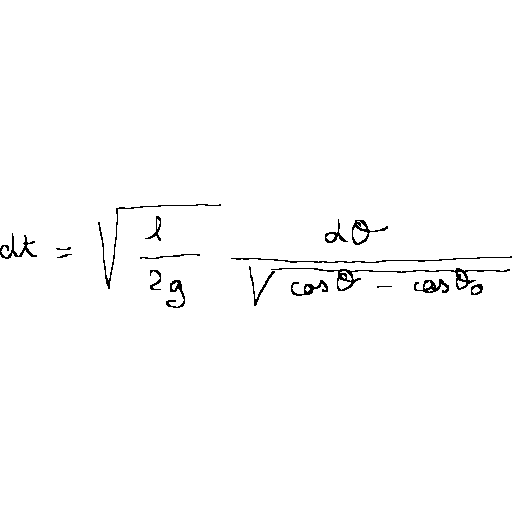 dt = \sqrt{\frac{l}{2g}} \frac{d\theta}{\sqrt{\cos\theta - \cos\theta_0}}